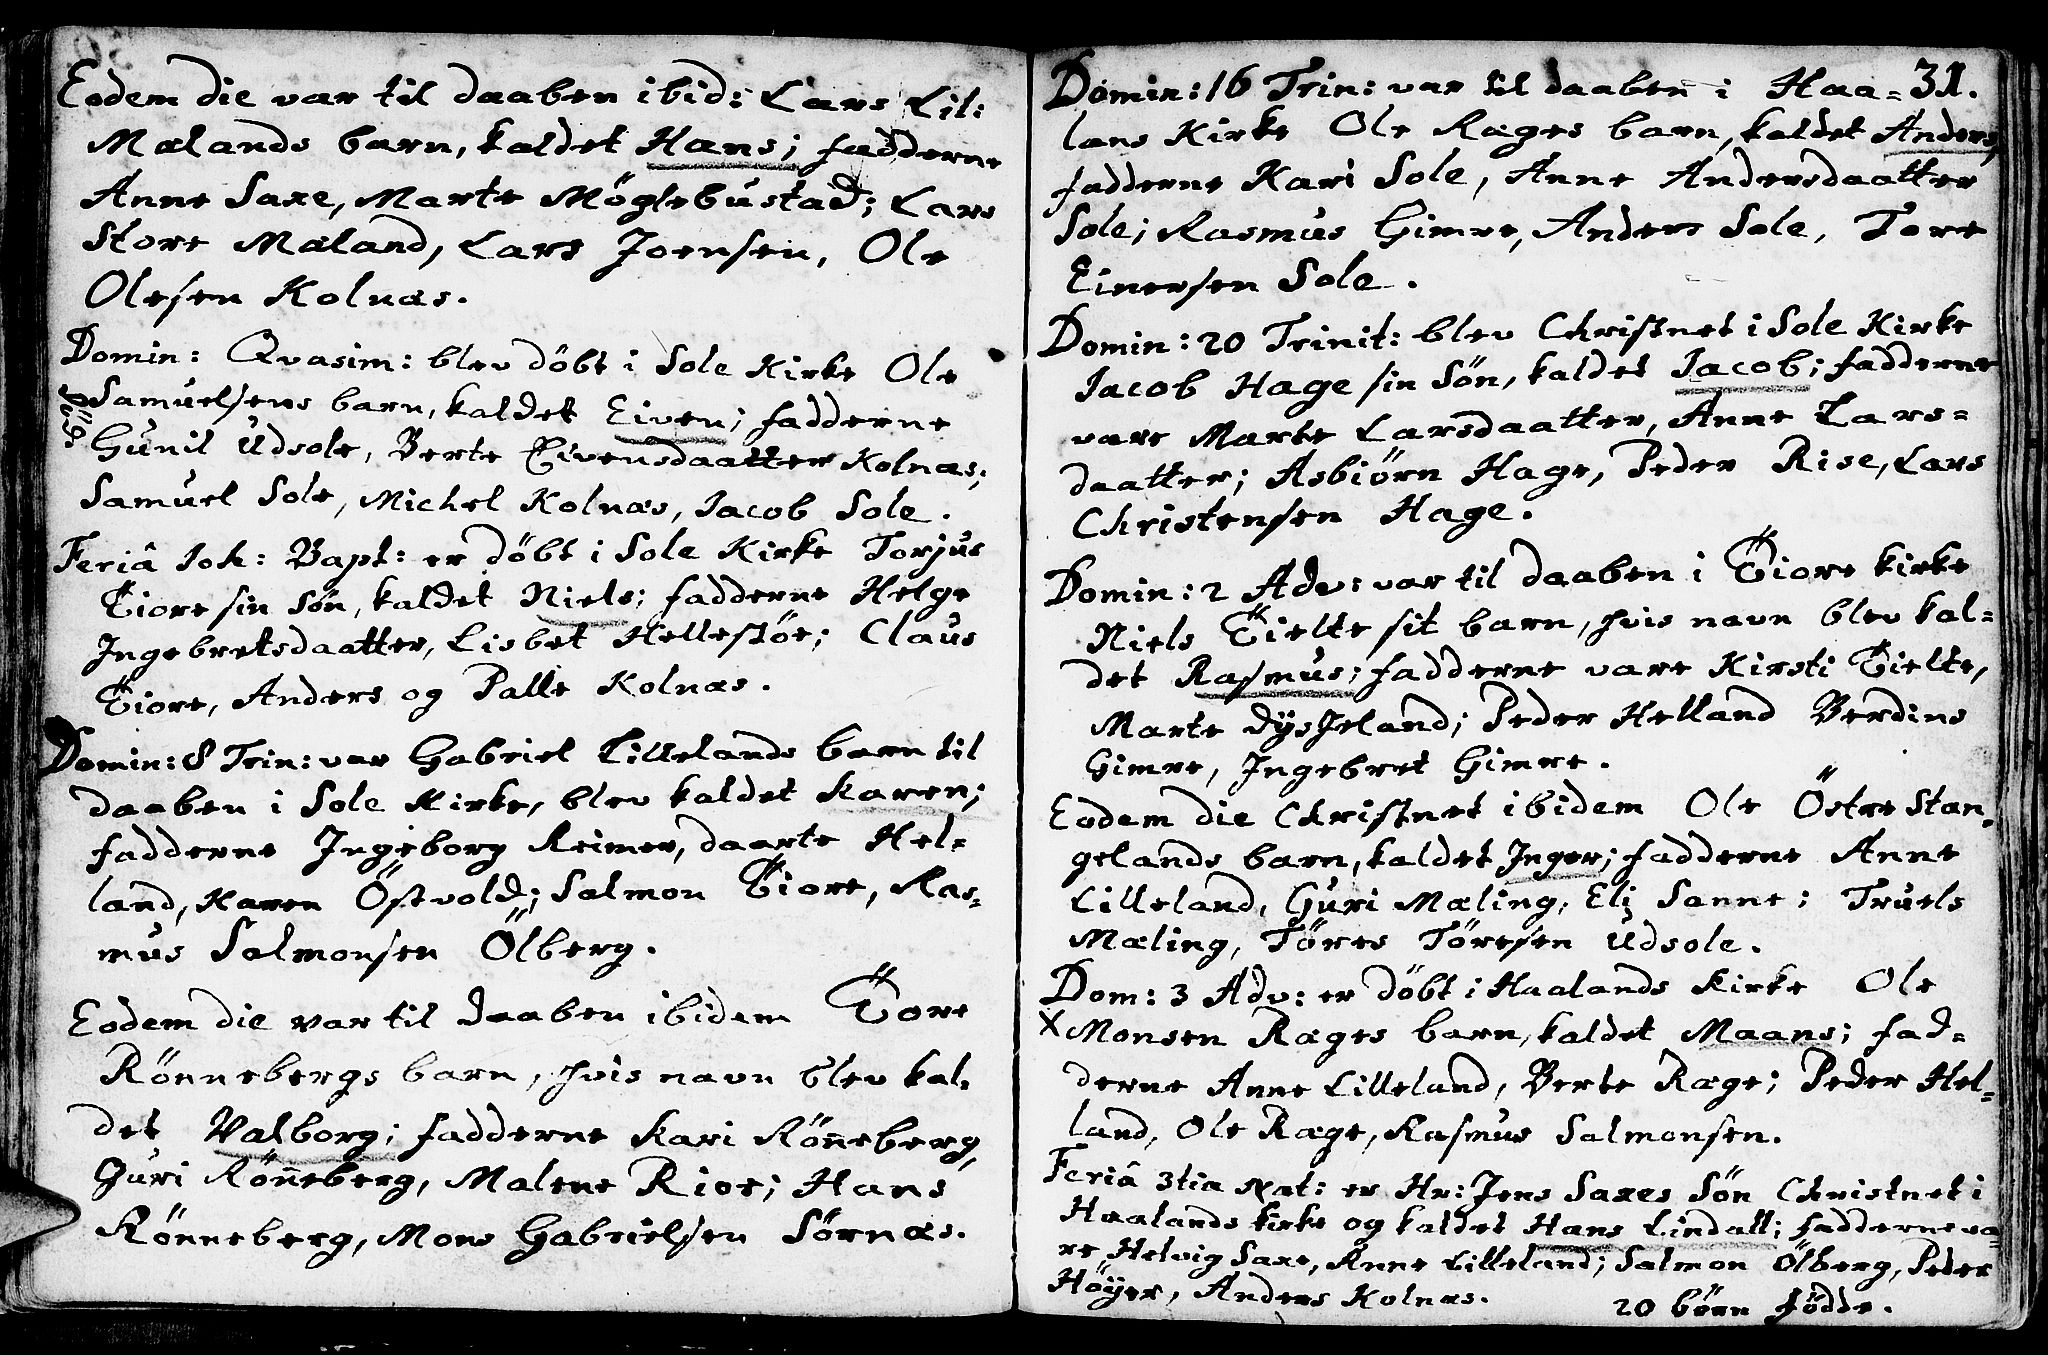 Eodem die var til daaben ibid: Lars Lil:
Mælands barn, kaldet Hans; fadderne
Anne Saxe, Marte Möglebustad; Lars
Store Mæland, Lars Joensen, Ole
Olesen Kolnæs.
Domin: Qvasim: blev döbt i Sole Kirke Ole
Samuelsens barn, kaldet Eiven; fadderne
Gunil Udsole, Berte Eivensdaatter Kolnæs;
Samuel Sole, Michel Kolnæs, Jacob Sole.
Feriâ Joh: Bapt: er döbt i Sole Kirke Torjus
Tiore sin Sön, kaldet Niels; fadderne Helge
Ingebretsdaatter, Lisbet Hellestöe; Claus
Tiore, Anders og Palle Kolnæs.
Domin: 8 Trin: var Gabriel Lillelands barn til
daaben i Sole Kirke, blev kaldet Karen;
fadderne Ingeborg Reimer, daarte Hel=
land, Karen Östvold; Salmon Tiore, Ras=
mus Salmonsen Ölberg.
Eodem die var til daaben ibidem Tore
Rönnebergs barn, hvis navn blev kal=
det Valborg; fadderne Kari Rönneberg,
Guri Röneberg, Malene Rioe; Hans
Rönneberg, Mons Gabrielsen Sörnæs.
31.
Domin: 16 Trin: var til daaben i Haa=
lans Kirke Ole Ræges barn, kaldet Anders,
fadderne Kari Sole, Anne Andersdaatter
Sole; Rasmus Gimre, Anders Sole, Tore
Einersen Sole.
Domin: 20 Trinit: blev Christnet i Sole Kirke
Jacob Hage sin Sön, kaldet Jacob; fadderne
vare Marte Larsdaatter, Anne Lars=
daatter; Asbiörn Hage, Peder Rise, Lars
Christensen Hage.
Domin: 2 Adv: var til daaben i Tiore kirke
Niels Tielte sit barn, hvis navn blev kal=
det Rasmus; fadderne vare Kirsti Tielte,
Marte Dysjeland; Peder Helland Berdins
Gimre, Ingebret Gimre.
Eodem die Christnet ibidem Ole Östre Stan=
gelands barn, kaldet Inger; fadderne Anne
Lilleland, Guri Mæling, Eli Sanne; Truels
Mæling, Töres Töresen Udsole.
Dom: 3 Adv: er döbt i Haalands Kirke Ole
X Monsen Ræges barn, kaldet Maans; fad=
derne Anne Lilleland, Berte Ræge; Peder Hel=
land, Ole Ræge, Rasmus Salmonsen.
Feriâ 3tia Nat: er Hr: Jens Saxes Sön Christnet i
Haalands kirke og kaldet Hans Lindall; fadderne va=
re Helvig Saxe, Anne Lilleland; Salmon Ölberg, Peder
Höyer, Anders Kolnæs.
20 börn födde.